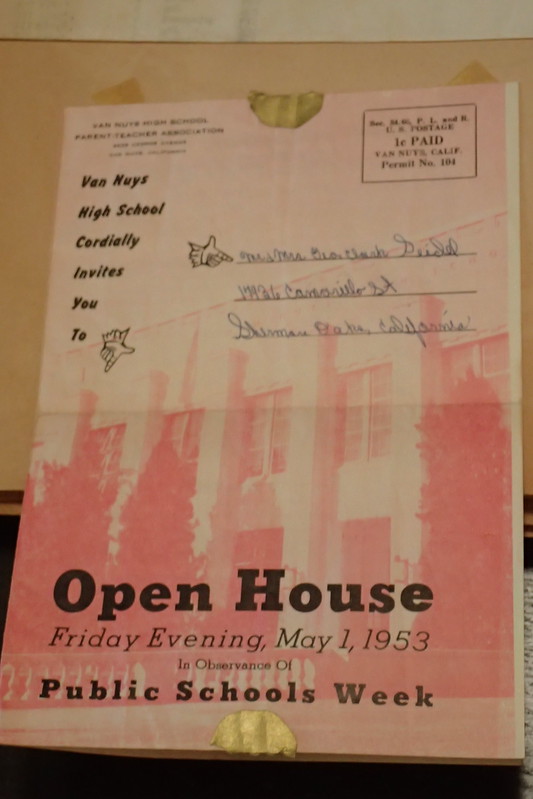 VAN NUYS HIGH SCHOOL
PARENT-TEACHER ASSOCIATION
VAN NUYS, CALIFORNIA
Sec. 34.65, P. L. and R.
U. S. POSTAGE
1c PAID
VAN NUYS, CALIF.
Permit No. 104
Van Nuys
High School
Cordially
Invites
You
To
Mrs Geidel
Camarillo St
Sherman Oaks, California
Open House
Friday Evening, May 1, 1953
In Observance Of
Public Schools Week